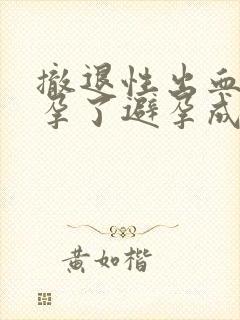 撤退性出血
孕了避孕成
黄如楷